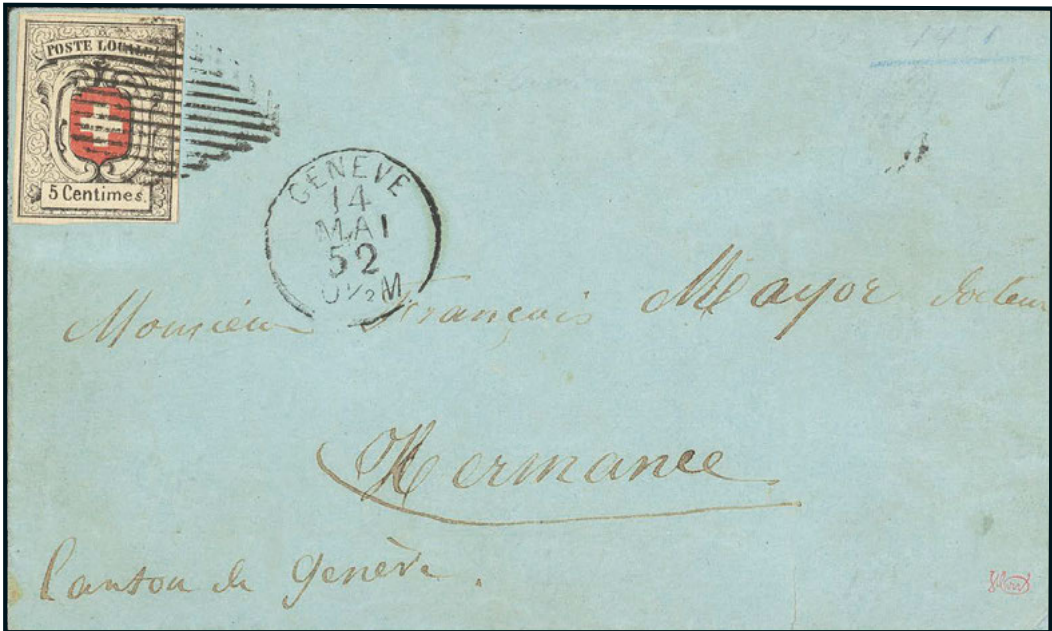 POSTE LOCALE
5 Centimes.
GENEVE
14
MAI
52
Monsieur François Mayor docteur
Hermance
Canton de Genève.